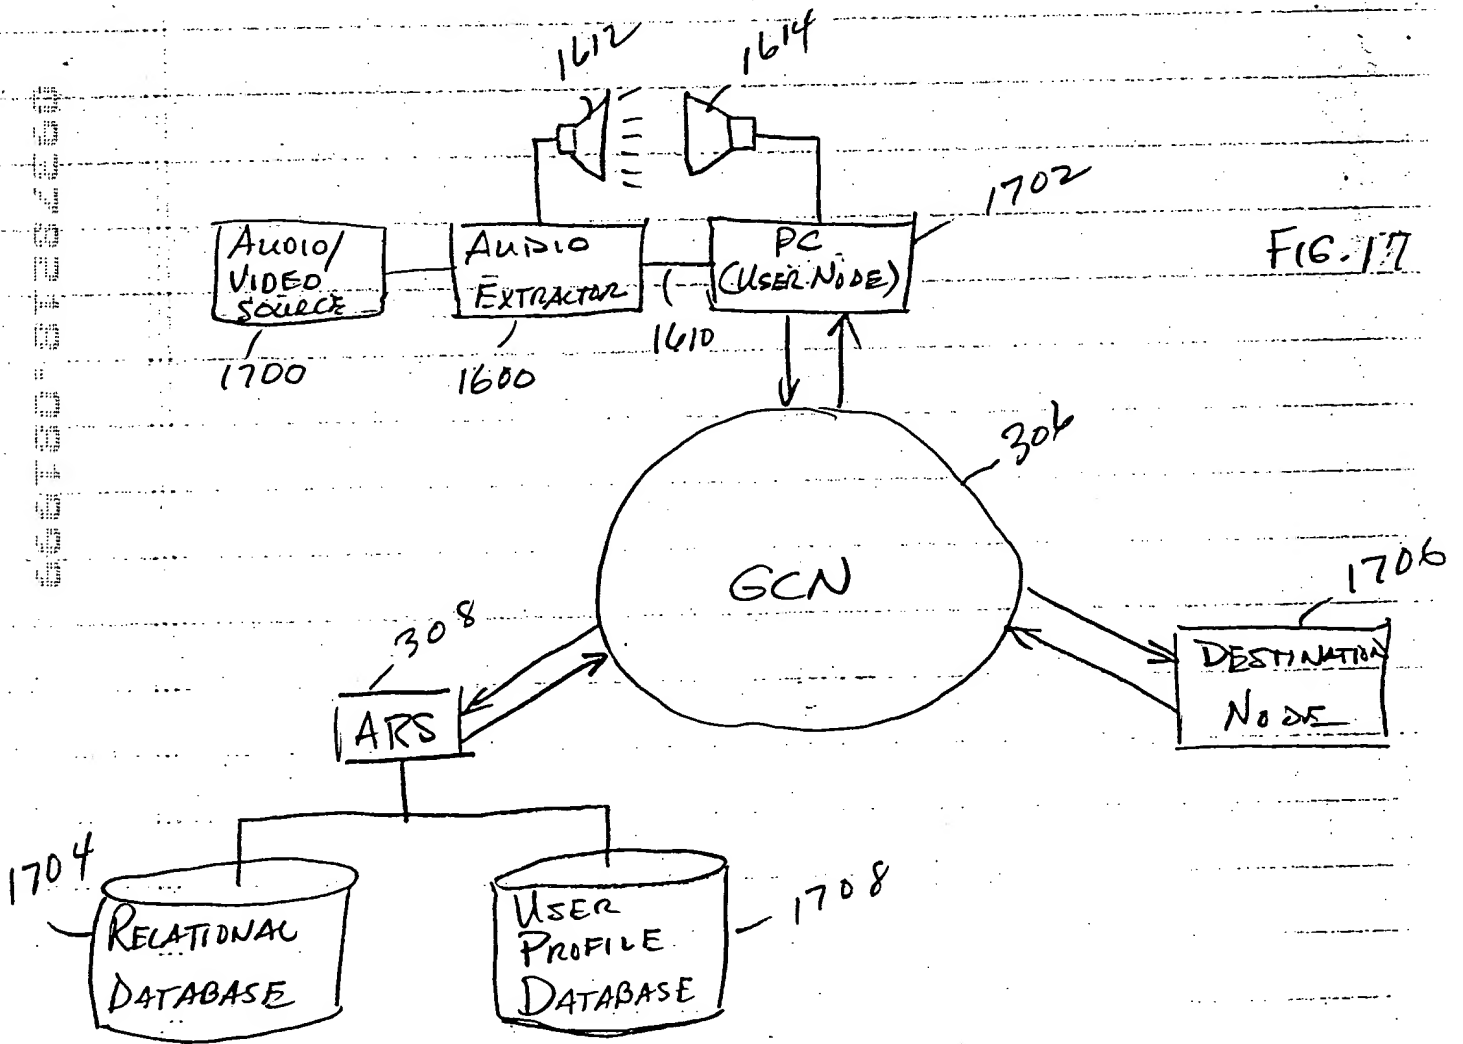 1612
1614
1702
AUDIO/
VIDEO
SOURCE
AUDIO
EXTRACTOR
PC
(USER NODE)
FIG. 17
1700
1600
1610
306
GCN
1706
308
DESTINATION
NODE
ARS
1704
RELATIONAL
DATABASE
USER
PROFILE
DATABASE
1708